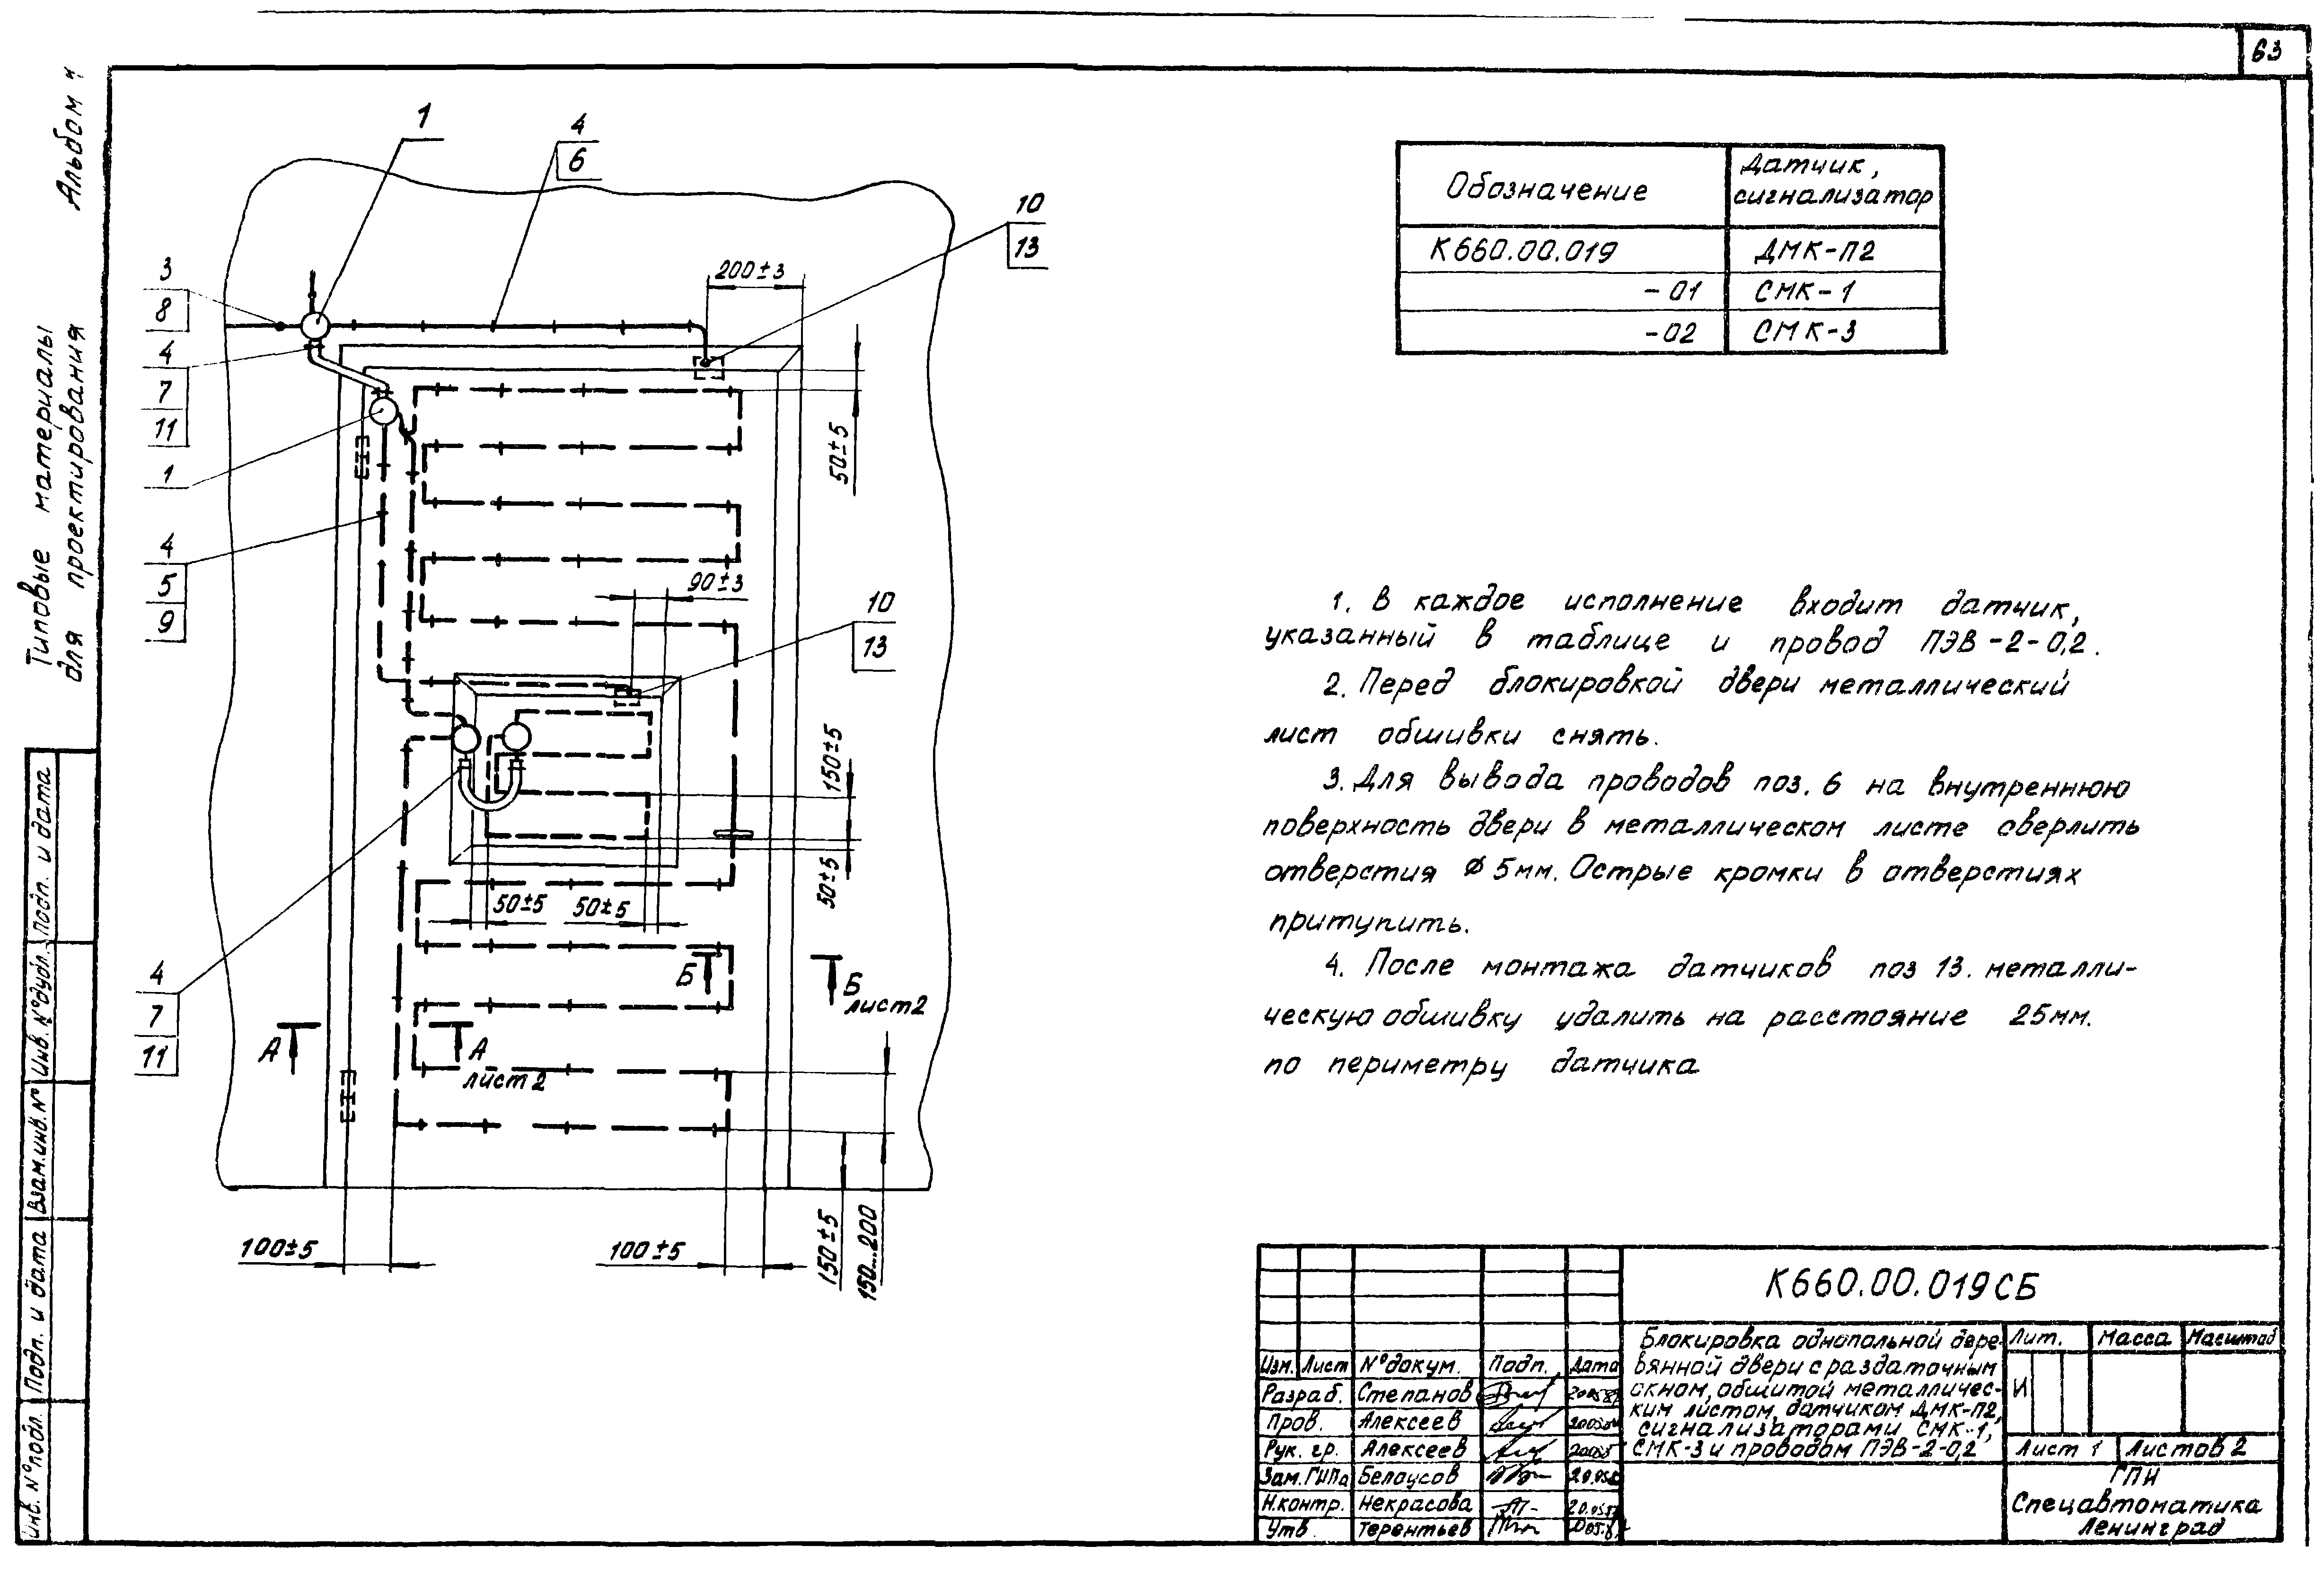 63
Альбом 4
Типовые материалы
для проектирования
1
4
6
10
13
200±3
3
8
4
7
11
1
50±5
4
5
9
90±3
10
13
150±5
50±5
50±5
50±5
4
7
11
Б
Б
лист 2
А
А
лист 2
100±5
100±5
150±5
150...200
Обозначение
Датчик,
сигнализатор
К660.00.019
ДМК-П2
-01
СМК-1
-02
СМК-3
1. В каждое исполнение входит датчик,
указанный в таблице и провод ПЭВ-2-0,2.
2. Перед блокировкой двери металлический
лист обшивки снять.
3. Для вывода проводов поз. 6 на внутреннюю
поверхность двери в металлическом листе сверлить
отверстия ϕ 5мм. Острые кромки в отверстиях
притупить.
4. После монтажа датчиков поз 13. металли-
ческую обшивку удалить на расстояние 25мм.
по периметру датчика
К660.00.019СБ
Блокировка однопольной дере-
вянной двери с раздаточным
окном, обшитой металличес-
ким листом, датчиком ДМК-П2,
сигнализаторами СМК-1,
СМК-3 и проводом ПЭВ-2-0,2
Лит.
Масса
Масштаб
И
Лист 1
Листов 2
ГПИ
Спецавтоматика
Ленинград
Изм. Лист № докум. Подп. Дата
Разраб. Степанов
Пров. Алексеев
Рук. гр. Алексеев
Зам. ГИПа Белоусов
Н.контр. Некрасова
Утв. Терентьев
Инв. № подл.
Подп. и дата
Взам. инв. №
Инв. № дубл.
Подп. и дата